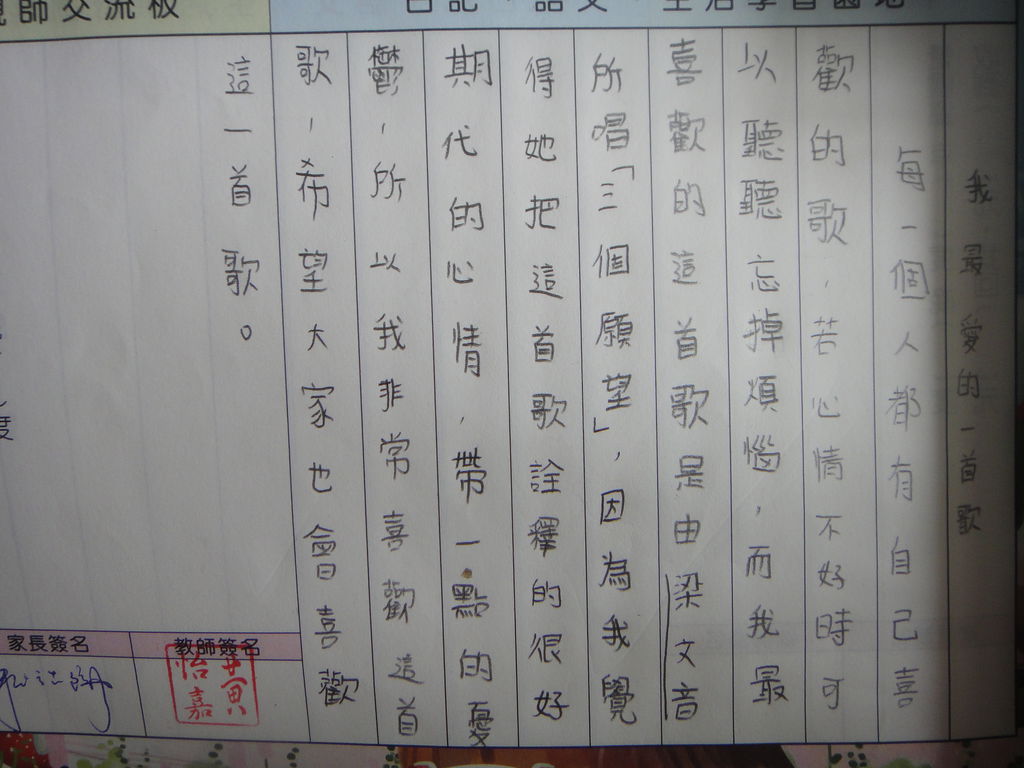 我最愛的一首歌
每一個人都有自己喜
歡的歌,若心情不好時可
以聽聽忘掉煩惱,而我最
喜歡的這首歌是由梁文音
所唱「三個願望」,因為我覺
得她把這首歌詮釋的很好
期代的心情,帶一點的憂
鬱,所以我非常喜歡這首
歌,希望大家也會喜歡
這一首歌。
親師交流板
教師簽名
家長簽名
黃怡嘉
度